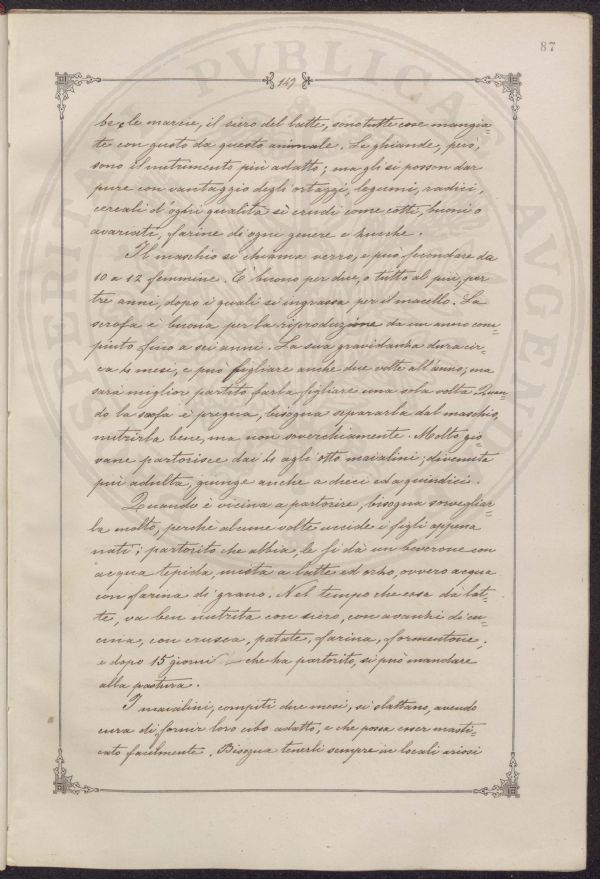 87
147
be, le marcie, il siero del latte, sono tutte cose mangia=
te con gusto da questo animale. Le ghiande, però,
sono il nutrimento più adatto; ma gli si posson dar
pure con vantaggio degli ortaggi, legumi, radici,
cereali d'ogni qualità sì crudi come cotti, buoni o
avariati, farine di ogni genere e zucche.
Il maschio si chiama verro, e può fecondare da
10 a 12 femmine. E' buono per due, o tutto al più, per
tre anni, dopo i quali si ingrassa per il macello. La
scrofa è buona per la riproduzione da un anno com=
piuto fino a sei anni. La sua gravidanza dura cir=
ca 4 mesi, e può figliare anche due volte all'anno; ma
sarà miglior partito farla figliare una sola volta. Quan=
do la scofa è pregna, bisogna separarla dal maschio,
nutrirla bene, ma non soverchiamente. Molto gio=
vane partorisce dai 4 agli otto maialini; divenuta
più adulta, giunge anche a dieci ed a quindici.
Quando è vicina a partorire, bisogna sorvegliar=
la molto, perchè alcune volte uccide i figli appena
nati; partorito che abbia, le si dà un beverone con
acqua tepida, mista a latte ed orzo, ovvero acqua
con farina di grano. Nel tempo che essa dà lat=
te, va ben nutrita con siero, con avanzi di cu=
cina, con crusca, patate, farina, formentone;
e dopo 15 giorni che ha partorito, si può mandare
alla pastura.
I maialini, compiti due mesi, si slattano, avendo
cura di fornir loro cibo adatto, e che possa esser masti=
cato facilmente. Bisogna tenerli sempre in locali ariosi
PVBLICAE
AVGENDAE